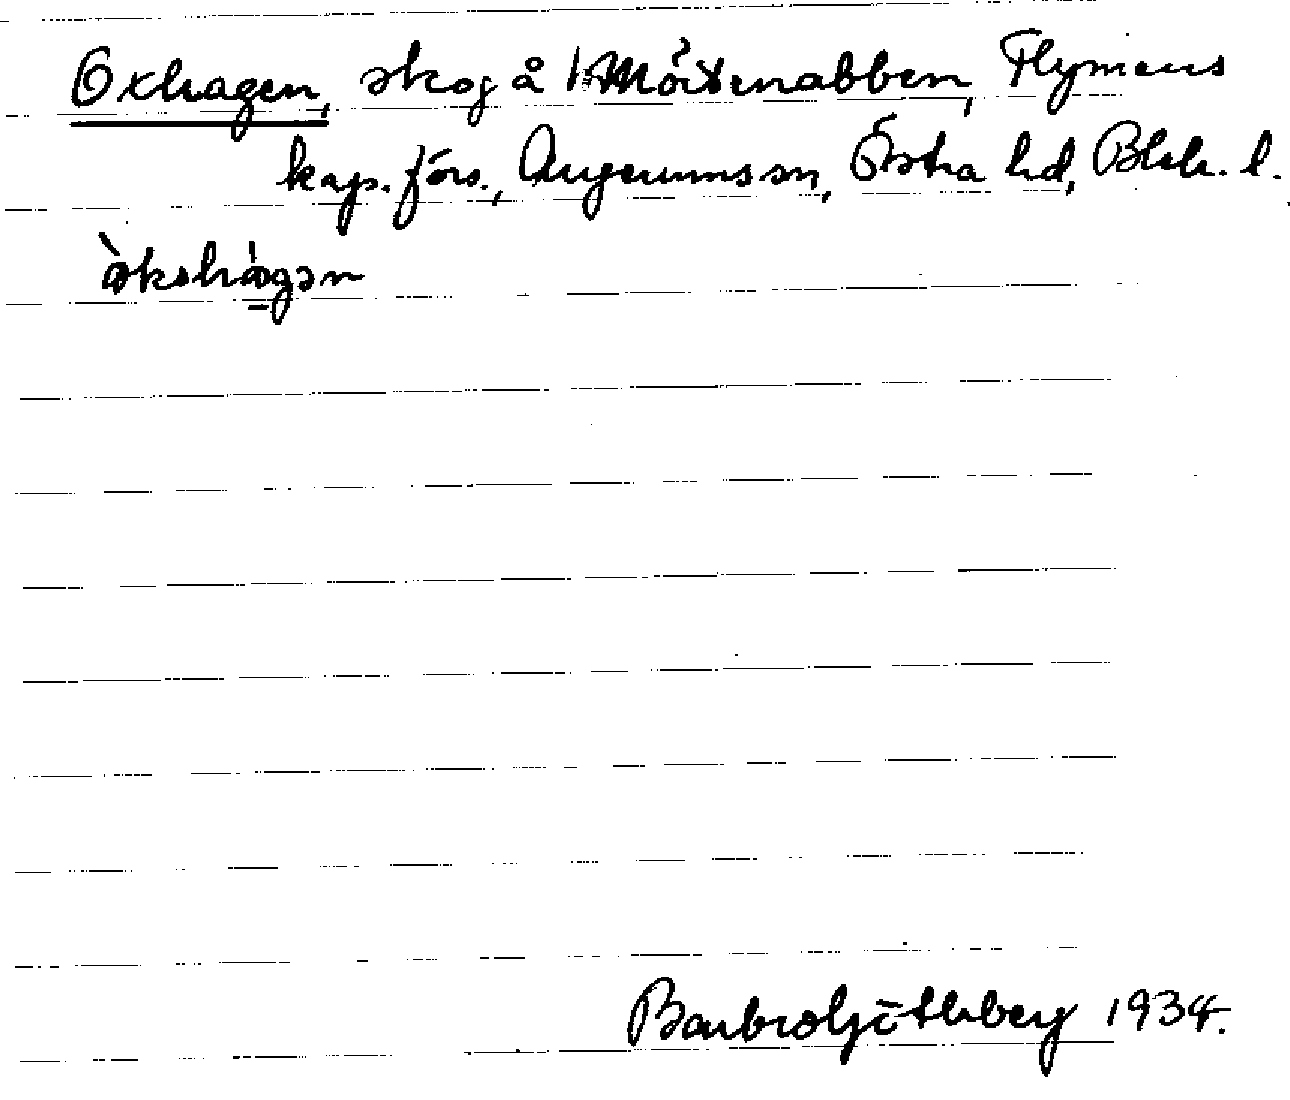 Oxhagen, skog å 1 Mörtenabben, Flymens
kap. förs., Augerums sn, Östra hd, Blek. l.
Barbro Götleberg 1934.